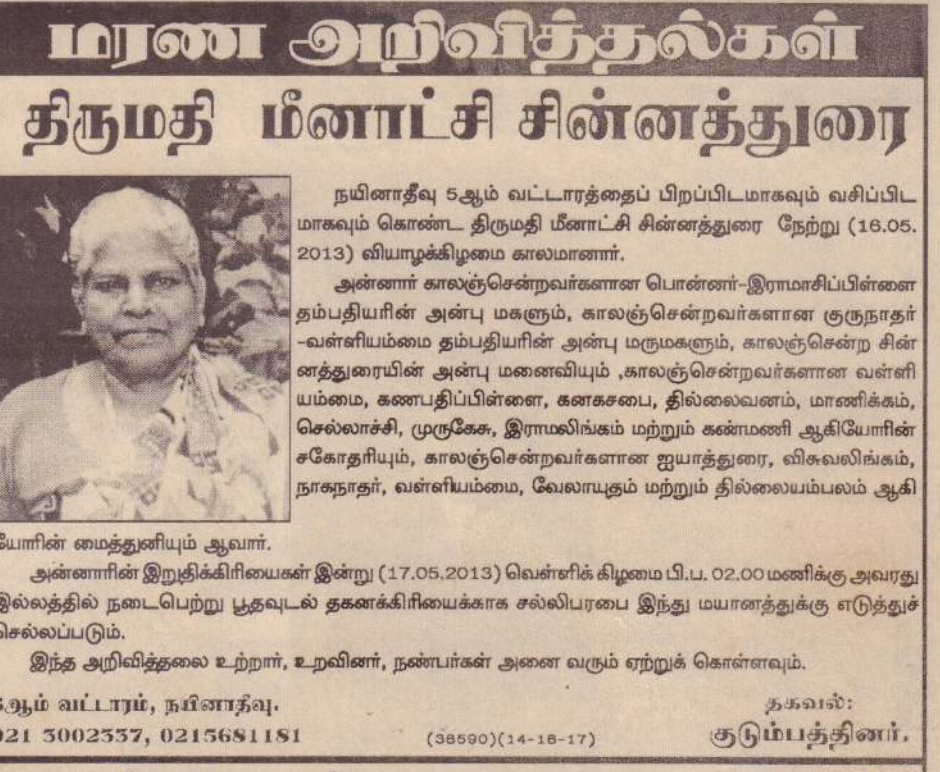 மரண அறிவித்தல்கள்
திருமதி மீனாட்சி சின்னத்துரை
நயினாதீவு 5ஆம் வட்டாரத்தைப் பிறப்பிடமாகவும் வசிப்பிட
மாகவும் கொண்ட திருமதி மீனாட்சி சின்னத்துரை நேற்று (16.05.
2013) வியாழக்கிழமை காலமானார்.
அன்னார் காலஞ்சென்றவர்களான பொன்னர்-இராமாசிப்பிள்ளை
தம்பதியரின் அன்பு மகளும், காலஞ்சென்றவர்களான குருநாதர்
-வள்ளியம்மை தம்பதியரின் அன்பு மருமகளும், காலஞ்சென்ற சின்
னத்துரையின் அன்பு மனைவியும் ,காலஞ்சென்றவர்களான வள்ளி
யம்மை, கணபதிப்பிள்ளை, கனகசபை, தில்லைவனம், மாணிக்கம்,
செல்லாச்சி, முருகேசு, இராமலிங்கம் மற்றும் கண்மணி ஆகியோரின்
சகோதரியும், காலஞ்சென்றவர்களான ஐயாத்துரை, விசுவலிங்கம்,
நாகநாதர், வள்ளியம்மை, வேலாயுதம் மற்றும் தில்லையம்பலம் ஆகி
யோரின் மைத்துனியும் ஆவார்.
அன்னாரின் இறுதிக்கிரியைகள் இன்று (17.05.2013) வெள்ளிக் கிழமை பி.ப. 02.00 மணிக்கு அவரது
இல்லத்தில் நடைபெற்று பூதவுடல் தகனக்கிரியைக்காக சல்லிபரபை இந்து மயானத்துக்கு எடுத்துச்
செல்லப்படும்.
இந்த அறிவித்தலை உற்றார், உறவினர், நண்பர்கள் அனை வரும் ஏற்றுக் கொள்ளவும்.
5ஆம் வட்டாரம், நயினாதீவு.
தகவல்:
021 3002337, 0215681181
(38590)(14-18-17)
குடும்பத்தினர்.